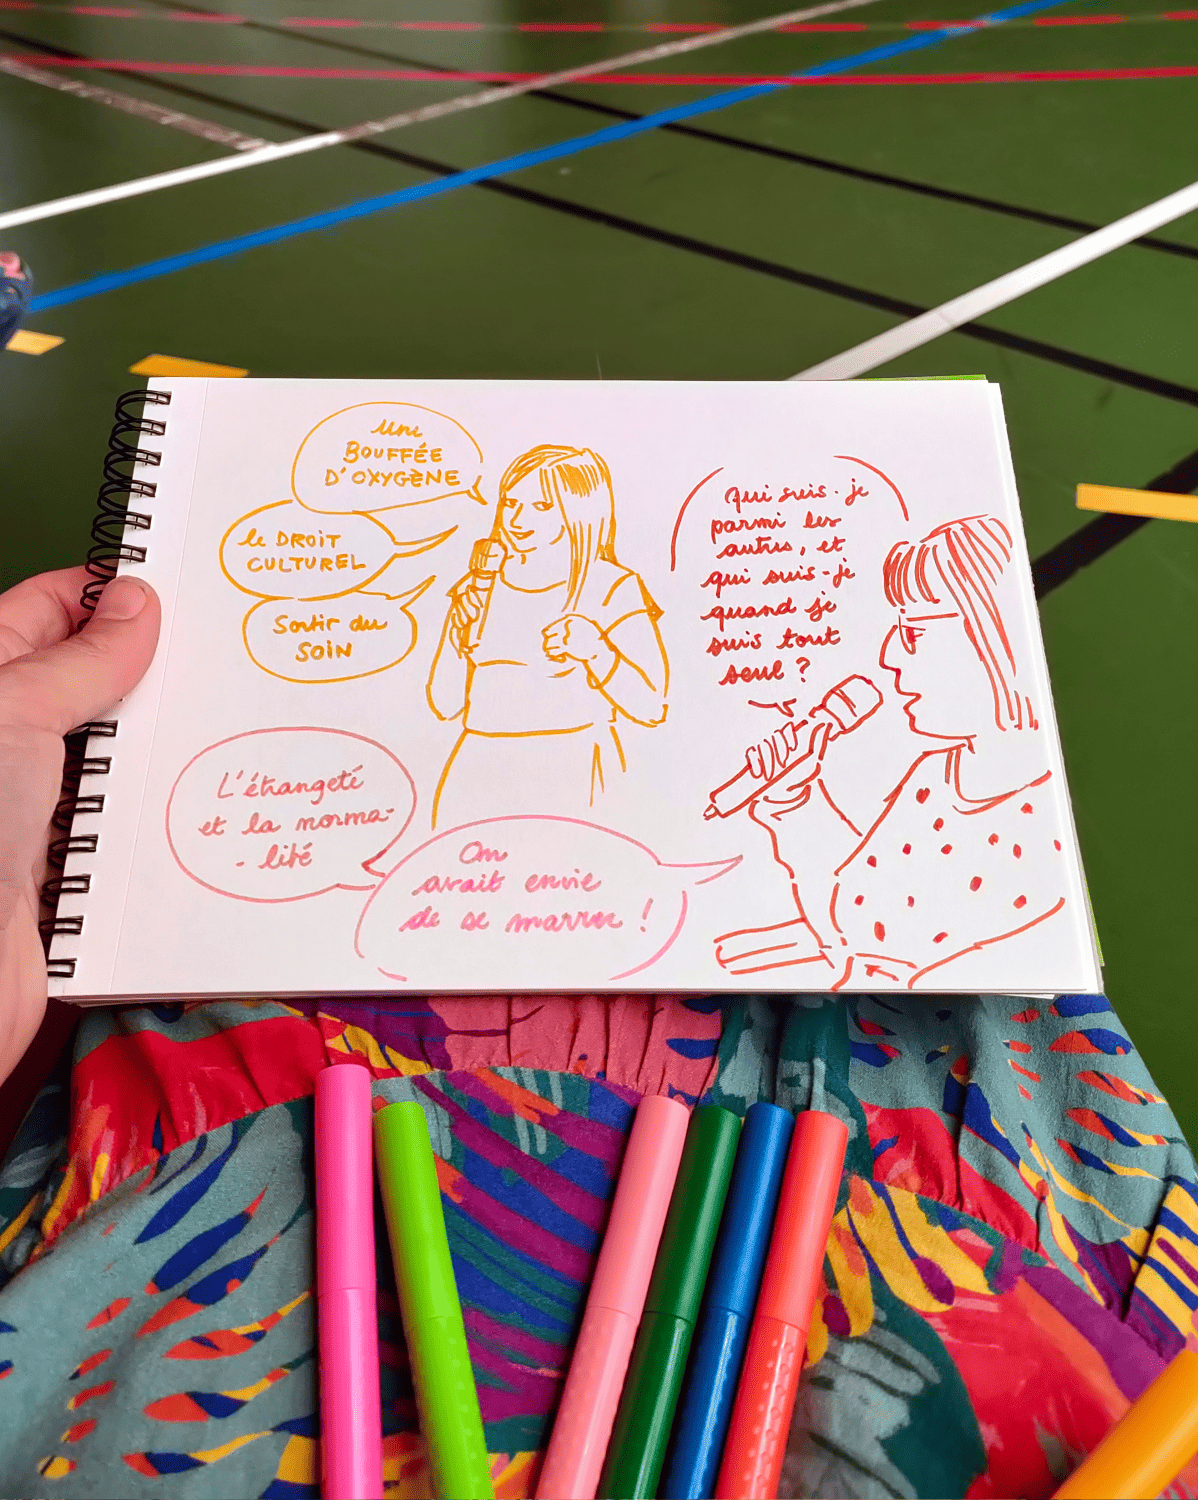 Une
BOUFFÉE
D'OXYGÈNE
le DROIT
CULTUREL
Sortir du
SOIN
Qui suis-je
parmi les
autres, et
qui suis-je
quand je
suis tout
seul ?
L'étrangeté
et la norma-
- lité
On
avait envie
de se marrer !